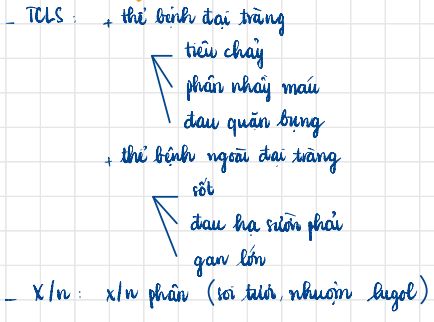 - TCLS : + thể bệnh đại tràng
tiêu chảy
phân nhầy máu
đau quặn bụng
+ thể bệnh ngoài đại tràng
sốt
đau hạ sườn phải
gan lớn
- X/n : x/n phân (soi tươi, nhuộm lugol)